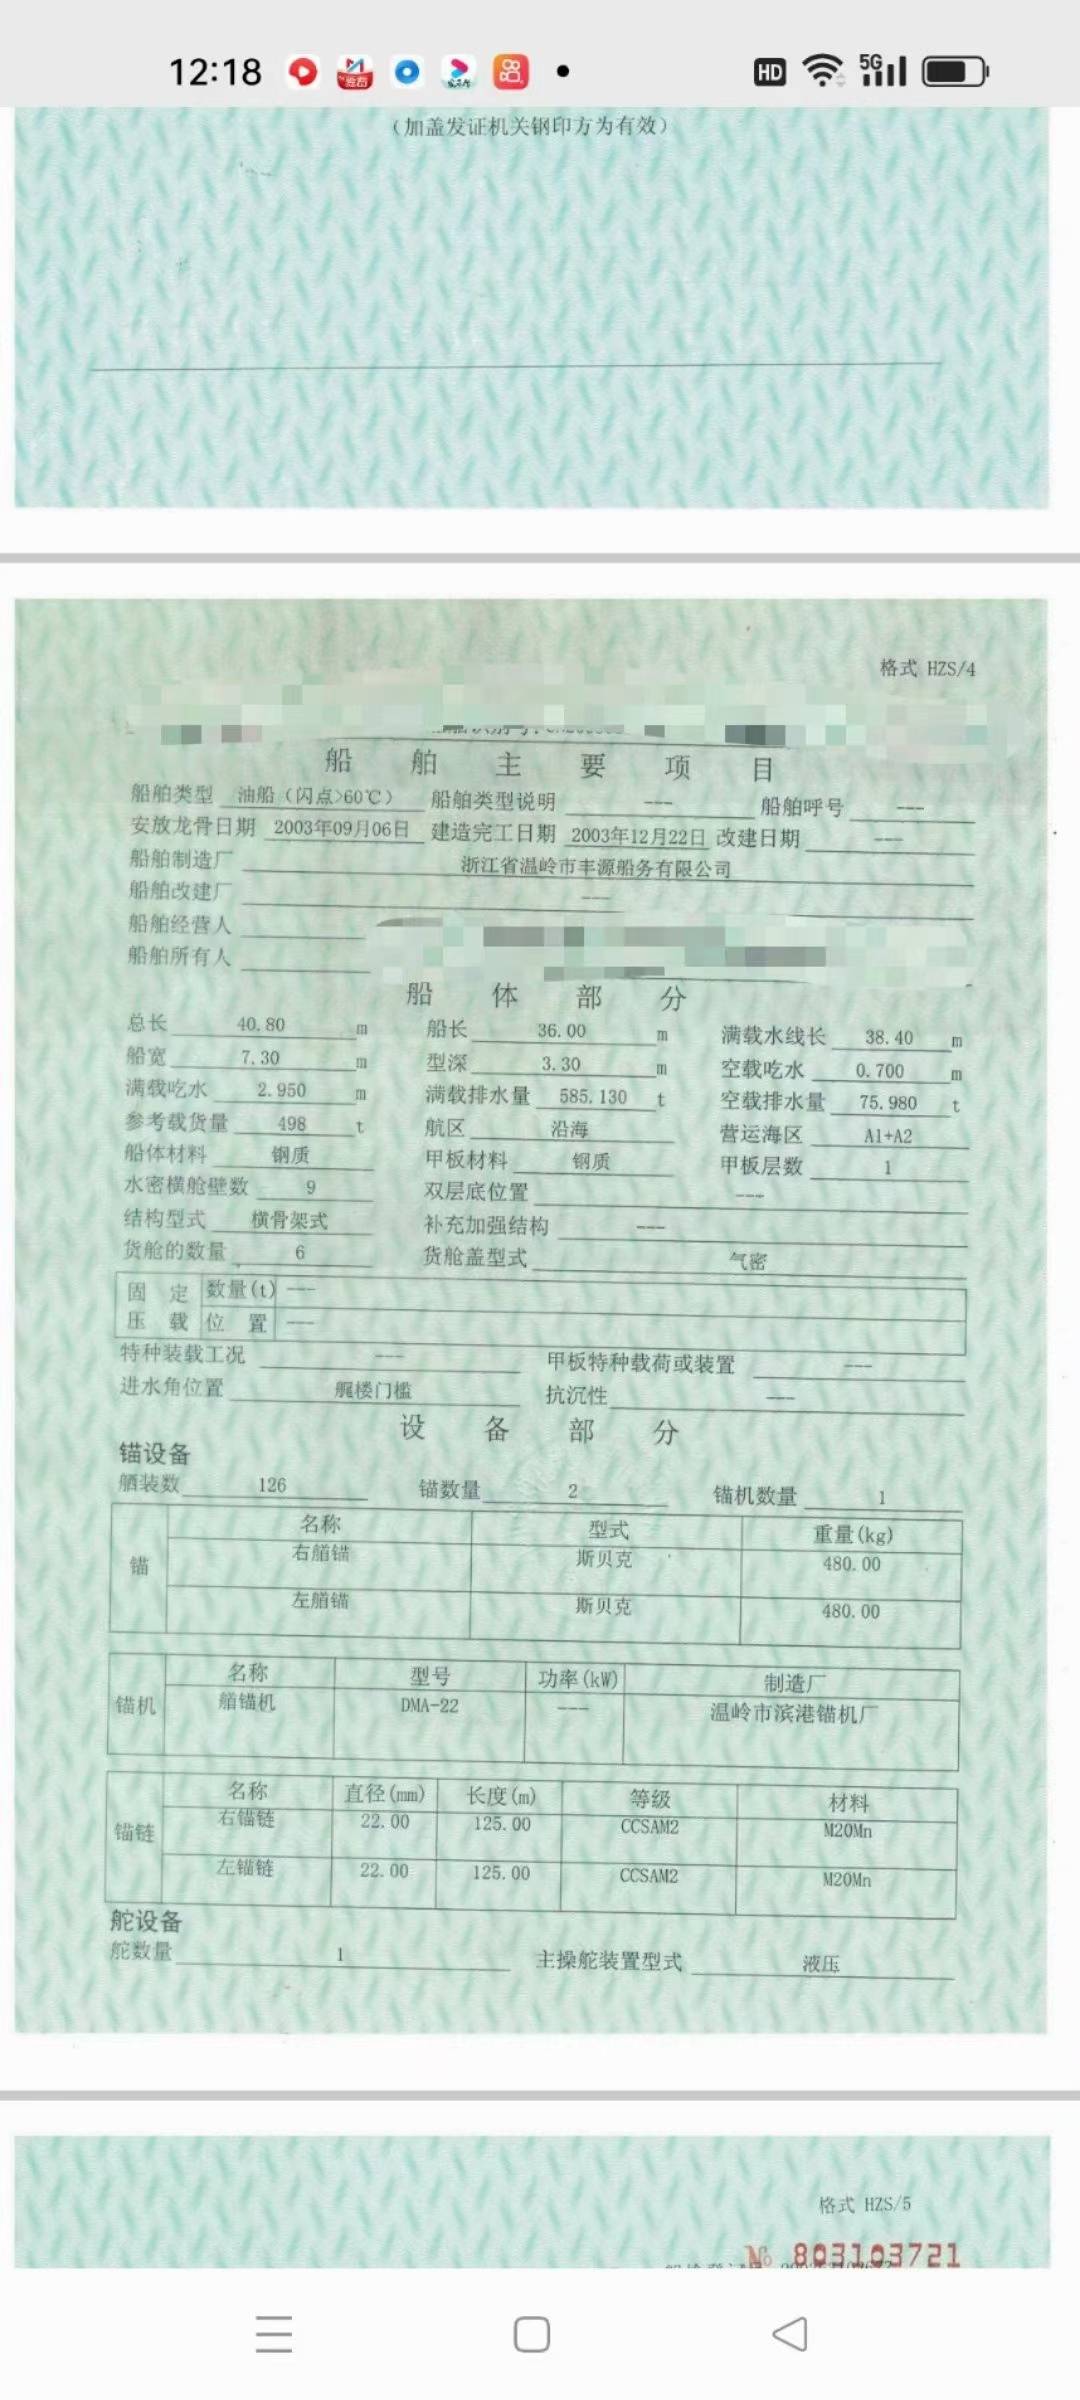 12:18 HD 5G
(加盖发证机关钢印方为有效)
格式 HZS/4
船舶主要项目
船舶类型 油船(闪点>60℃) 船舶类型说明 --- 船舶呼号 ---
安放龙骨日期 2003年09月06日 建造完工日期 2003年12月22日 改建日期 ---
船舶制造厂 浙江省温岭市丰源船务有限公司
船舶改建厂 ---
船舶经营人
船舶所有人
船体部分
总长 40.80 m 船长 36.00 m 满载水线长 38.40 m
船宽 7.30 m 型深 3.30 m 空载吃水 0.700 m
满载吃水 2.950 m 满载排水量 585.130 t 空载排水量 75.980 t
参考载货量 498 t 航区 沿海 营运海区 A1+A2
船体材料 钢质 甲板材料 钢质 甲板层数 1
水密横舱壁数 9 双层底位置 ---
结构型式 横骨架式 补充加强结构 ---
货舱的数量 6 货舱盖型式 气密
固定 数量(t) ---
压载 位置 ---
特种装载工况 --- 甲板特种载荷或装置 ---
进水角位置 艉楼门槛 抗沉性 ---
设备部分
锚设备
舾装数 126 锚数量 2 锚机数量 1
名称 型式 重量(kg)
锚 右艏锚 斯贝克 480.00
左艏锚 斯贝克 480.00
名称 型号 功率(kW) 制造厂
锚机 艏锚机 DMA-22 --- 温岭市滨港锚机厂
名称 直径(mm) 长度(m) 等级 材料
锚链 右锚链 22.00 125.00 CCSAM2 M20Mn
左锚链 22.00 125.00 CCSAM2 M20Mn
舵设备
舵数量 1 主操舵装置型式 液压
格式 HZS/5
№ 803103721